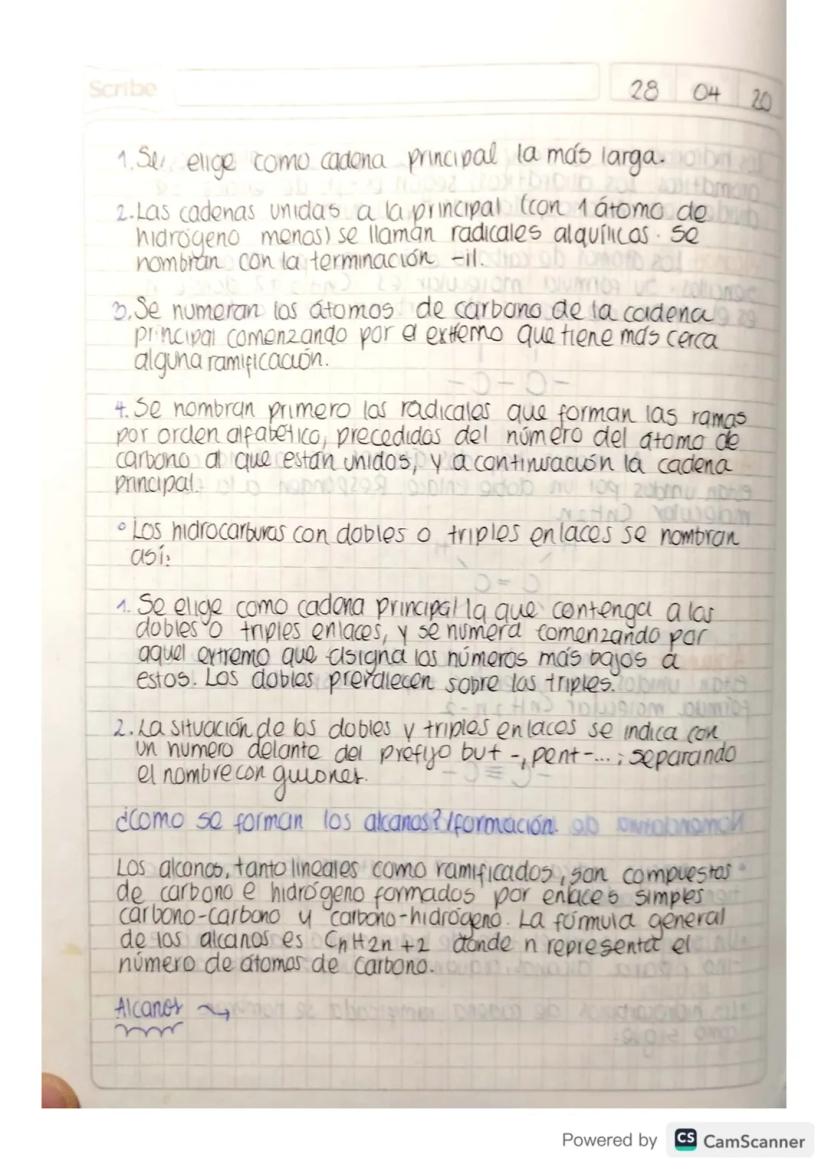 Scribe
28 04 20
1. Se elige como cadena principal la más larga.
2. Las cadenas unidas a la principal (con 1 átomo de
hidrógeno menos) se llaman radicales alquílicos. Se
nombran con la terminación -il.
3. Se numeran los átomos de carbono de la cadena
principal comenzando por el extremo que tiene más cerca
alguna ramificación.
4. Se nombran primero los radicales que forman las ramas
por orden alfabético, precedidos del número del átomo de
carbono al que están unidos, y a continuación la cadena
principal.
° Los hidrocarburos con dobles o triples enlaces se nombran
así:
1. Se elige como cadena principal la que contenga a los
dobles o triples enlaces, y se numera comenzando por
aquel extremo que asigna los números más bajos a
estos. Los dobles prevalecen sobre los triples.
2. La situación de los dobles y triples enlaces se indica con
un numero delante del prefijo but -, pent -... ; separando
el nombre con guiones.
¿Como se forman los alcanos?/formación.
Los alcanos, tanto lineales como ramificados, son compuestos
de carbono e hidrógeno formados por enlaces simples
carbono-carbono y carbono-hidrógeno. La fórmula general
de los alcanos es CnH2n +2 donde n representa el
número de átomos de carbono.
Alcanos →
Powered by CS CamScanner